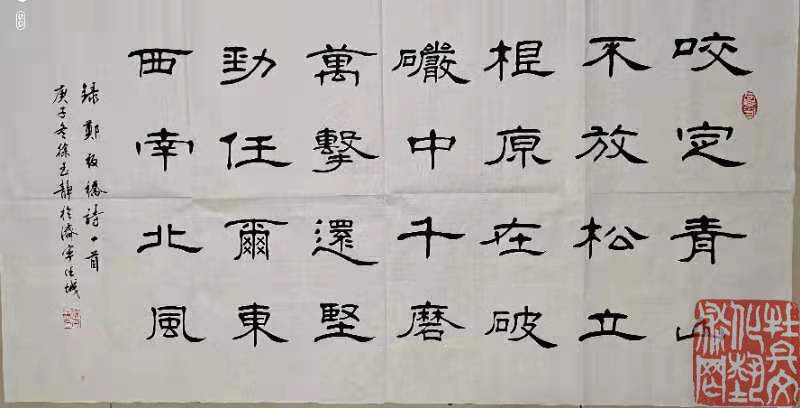 咬定青山
不放松立
根原在破
礹中千磨
萬擊還堅
勁任爾東
西南北風
録鄭板橋詩一首
庚子冬徐玉静於濟寧任城